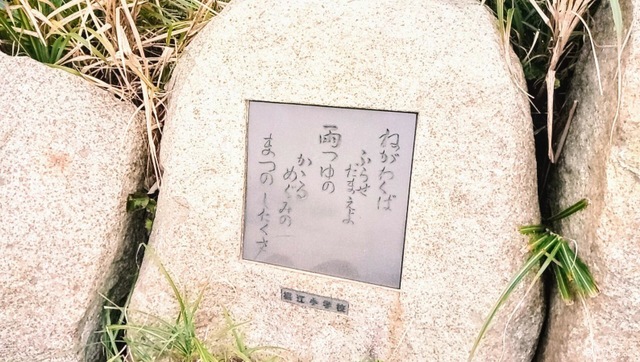 ねがわくば
ふらせ
たまえよ
雨つゆの
かゝる
めぐみの
まつのしたくさ
堀江小学校